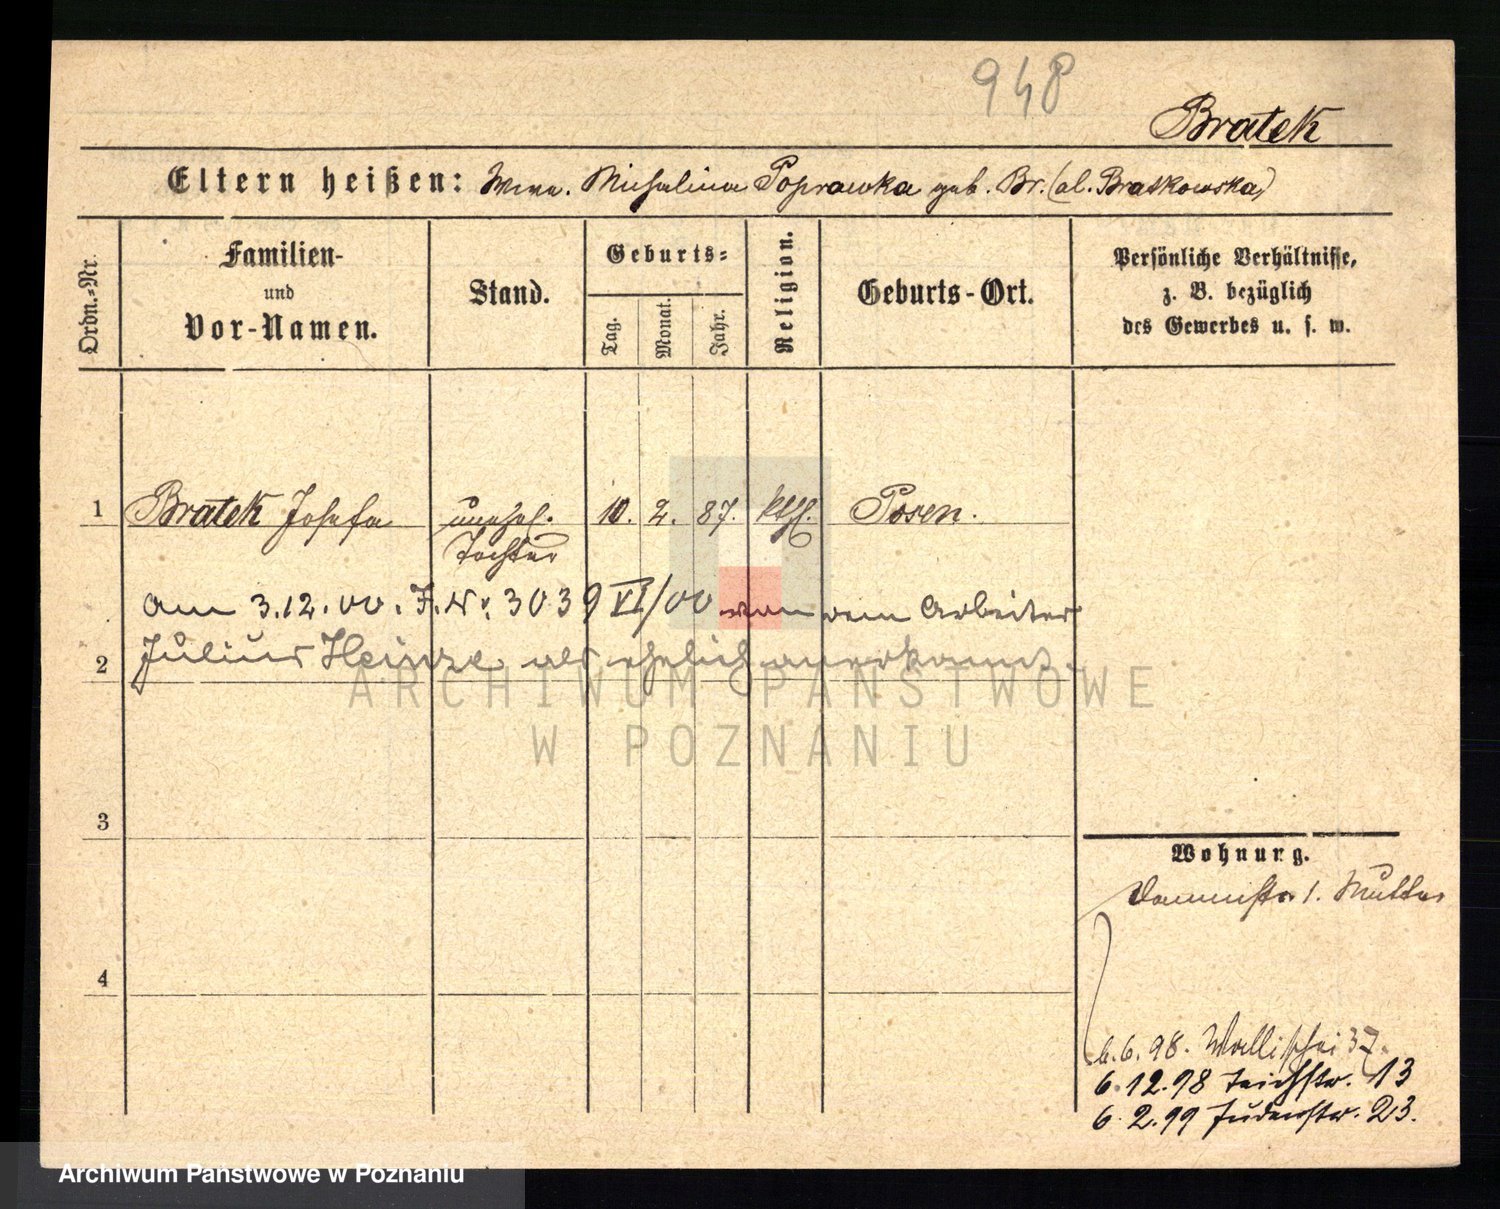 948
Bratek
Eltern heißen: Wwe. Michalina Poprawka geb. Br. (al. Bratkowska)
Ordn.-Nr.
Familien-
und
Vor-Namen.
Stand.
Geburts-
Tag.
Monat.
Jahr.
Religion.
Geburts-Ort.
Persönliche Verhältnisse,
z. B. bezüglich
des Gewerbes u. s. w.
1 Bratek Josefa unehel. 10. 2. 87. kth. Posen.
Tochter
am 3.12.00. J. Nr. 3039 VI/00 von dem Arbeiter
2 Julius Heinze als ehelich anerkannt.
ARCHIWUM PAŃSTWOWE
W POZNANIU
3
Wohnung.
Dammstr. 1. Mutter
4
6.6.98. Wallischei 37.
6.12.98 Teichstr. 13
6.2.99 Judenstr. 23.
Archiwum Państwowe w Poznaniu